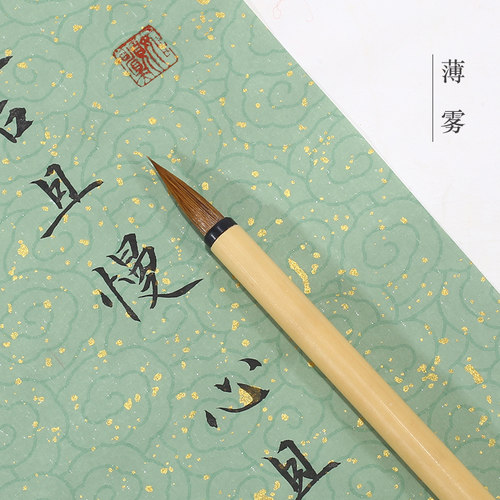 薄雾
且慢心且